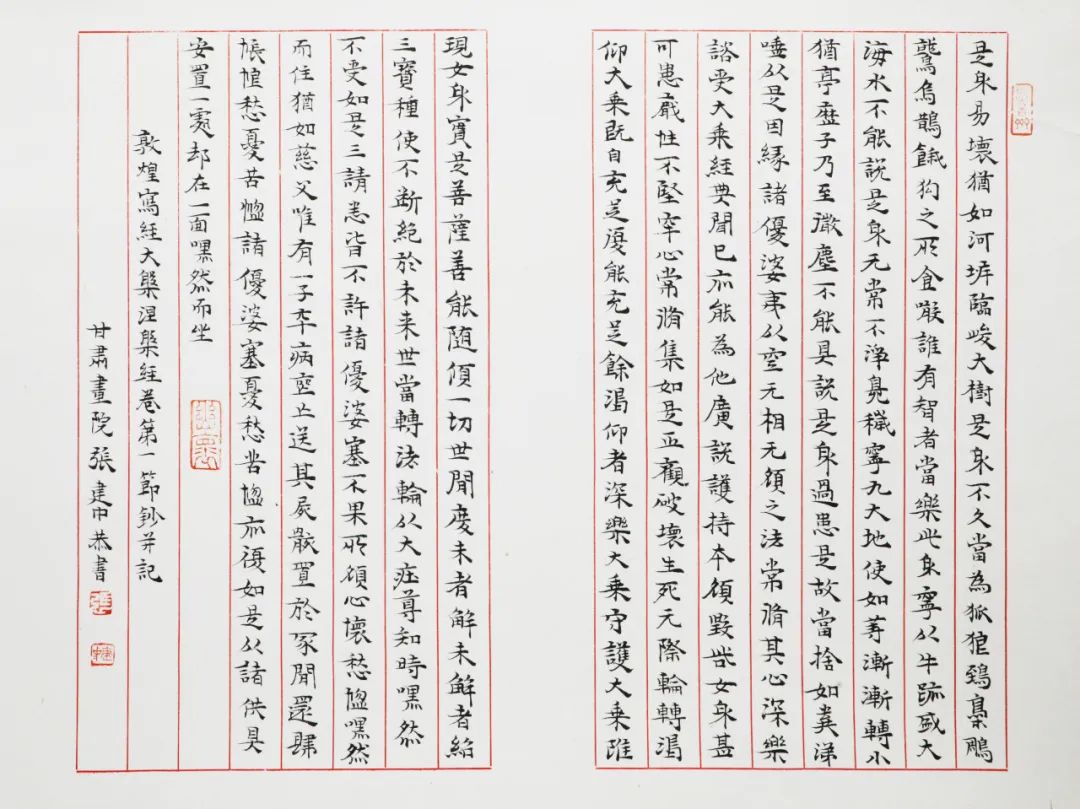 是身易壞猶如河岸臨峻大樹是身不久當為狐狼鵄梟鵰
鷲烏鵲餓狗之所食噉誰有智者當樂此身寧以牛跡盛大
海水不能說是身无常不淨臭穢寧丸大地使如棗漸漸轉小
猶亭歷子乃至微塵不能具說是身過患是故當捨如糞涕
唾以是因緣諸優婆夷以空无相无願之法常脩其心深樂
諮受大乘經典聞已亦能為他廣說護持本願毀呰女身甚
可患厭性不堅牢心常脩集如是正觀破壞生死无際輪轉渴
仰大乘既自充足復能充足餘渴仰者深樂大乘守護大乘雖
現女身實是菩薩善能隨順一切世間度未者解未解者紹
三寶種使不斷絕於未來世當轉法輪以大莊尊知時嘿然
不受如是三請悉皆不許諸優婆塞不果所願心懷愁惱嘿然
而住猶如慈父唯有一子卒病喪亡送其屍骸置於冢間還歸
悵怏愁憂苦惱諸優婆塞憂愁苦惱亦復如是以諸供具
安置一處却在一面嘿然而坐
敦煌寫經大槃涅槃經卷第一節鈔并記
甘肅畫院張建中恭書